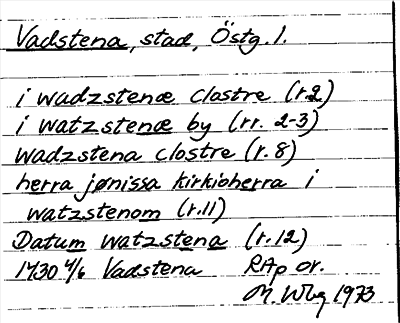 Vadstena, stad, Östg. l.
i wadzstenæ clostre (r.2)
i watzstenæ by (rr. 2-3)
wadzstena clostre (r.8)
herra jønissa kirkioherra i
watzstenom (r.11)
Datum watzstena (r.12)
1430 4/6 Vadstena RAp or.
M. Wbg 1973